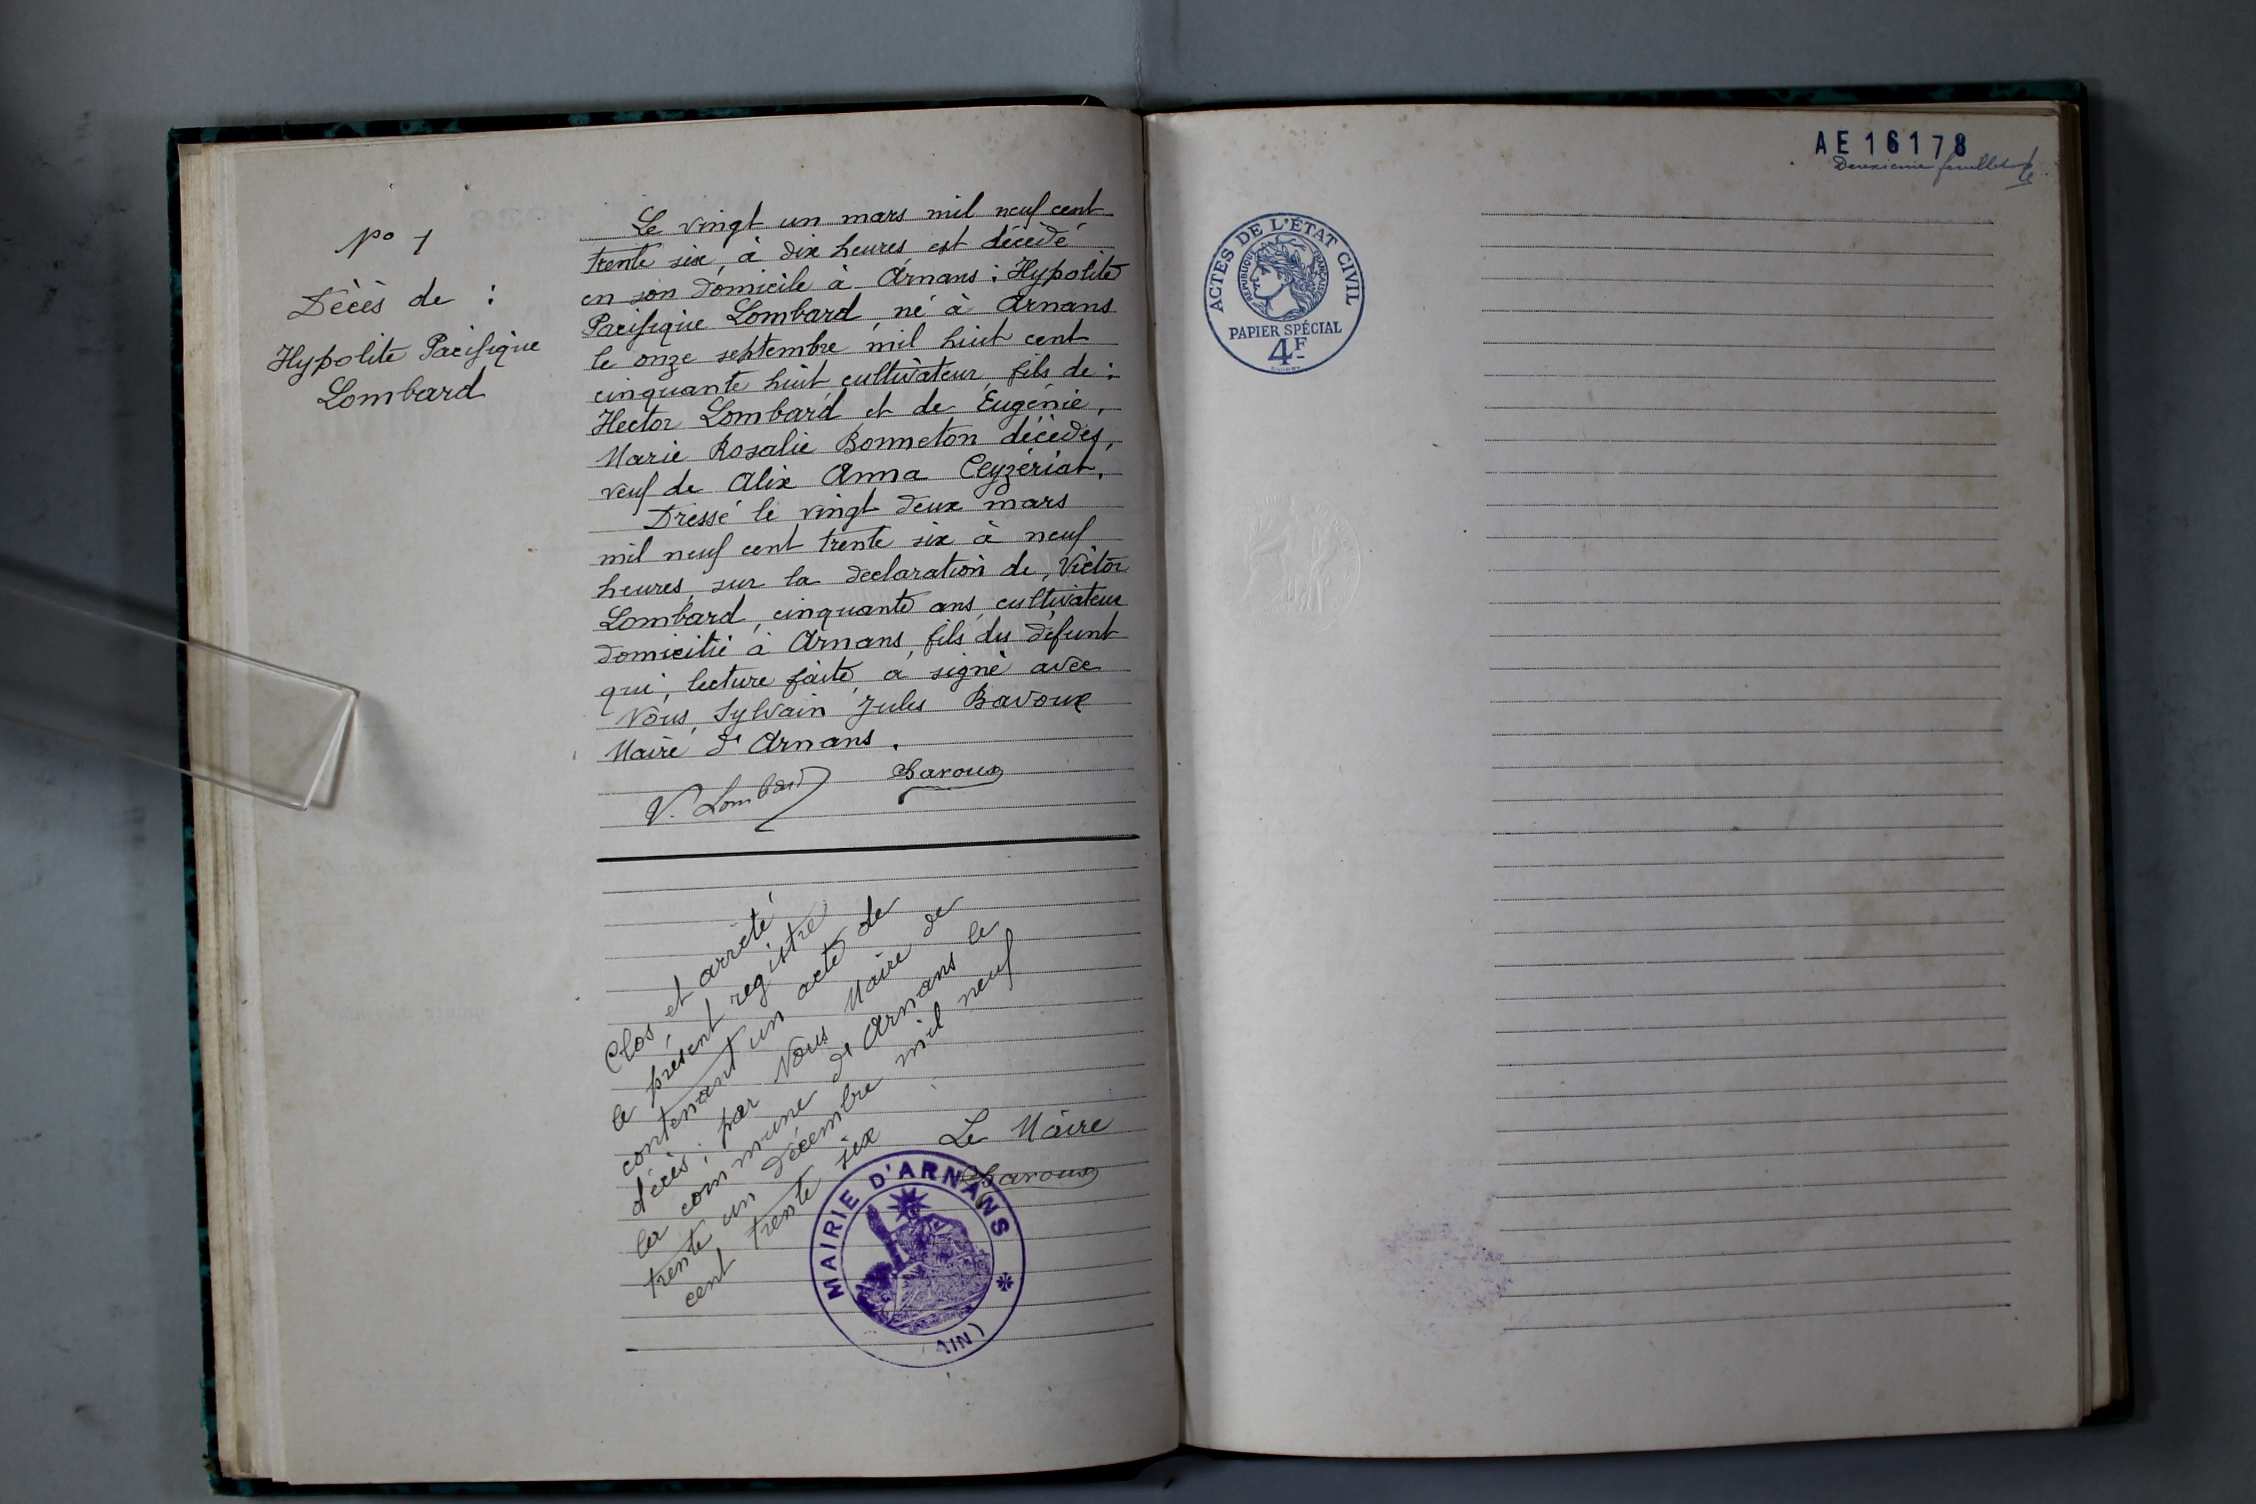 No 1
Décès de :
Hypolite Pacifique
Lombard
Le vingt un mars mil neuf cent
trente six, à dix heures, est décédé
en son domicile à Arnans : Hypolite
Pacifique Lombard, né à Arnans
le onze septembre mil huit cent
cinquante huit, cultivateur, fils de :
Hector Lombard et de Eugénie,
Marie Rosalie Bonneton décèdés,
veuf de Alix Anna Ceyzériat.
Dressé le vingt deux mars
mil neuf cent trente six à neuf
heures, sur la declaration de, Victor
Lombard, cinquante ans, cultivateur
domicilié à Arnans, fils du défunt
qui, lecture faite, a signé avec
Nous, Sylvain Jules Bavoux
Maire d'Arnans.
V. Lombard Bavoux
Clos, et arrêté
le présent registre
contenant un acte de
décès, par Nous Maire de
la commune d'Arnans le
trente un décembre mil neuf
cent trente six
Le Maire
Bavoux
MAIRIE D'ARNANS
AIN)
AE 16178
Deuxième feuillet
ACTES DE L'ÉTAT CIVIL
RÉPUBLIQUE FRANÇAISE
PAPIER SPÉCIAL
4F